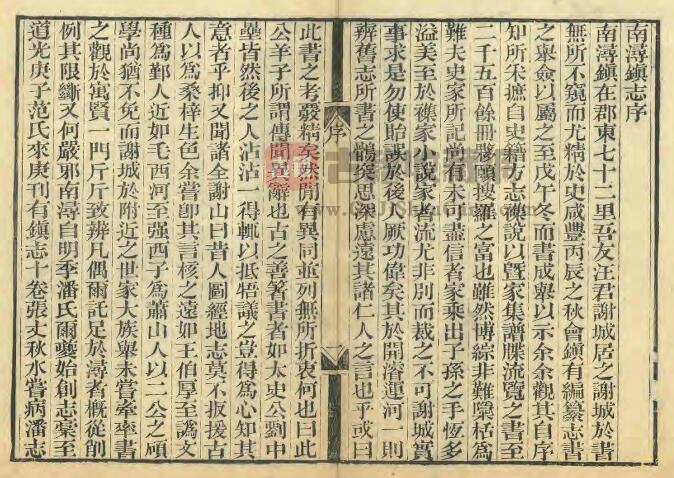 南潯鎮志序
南潯鎮在郡東七十二里吾友汪君謝城居之謝城於書
無所不窺而尤精於史咸豐丙辰之秋會鎮有編纂志書
之舉僉以屬之至戊午冬而書成舉以示余余觀其自序
知所朱摭自史籍方志襍說以曁家集譜牒流覽之書至
二千五百餘冊夥頤搜羅之富也雖然博綜非難櫽栝爲
難夫史家所記尚有未可盡信者家乘出子孫之手恆多
溢美至於襍家小說家者流尤非別而裁之不可謝城實
事求是勿使貽誤於後人厥功偉矣其於開濬運河一則
辨舊志所書之鶻突思深慮遠其諸仁人之言也乎或曰
此書之考覈精矣然閒有異同並列無所折衷何也曰此
公羊子所謂傳聞異辭也古之善箸書者如太史公劉中
壘皆然後之人沾沾一得輒以抵牾議之豈得爲心知其
意者乎抑又聞諸全謝山曰昔人圖經地志莫不扳援古
人以爲桑梓生色余嘗卽其言核之遠如王伯厚至譌文
種爲鄞人近如毛西河至强西子爲蕭山人以二公之碩
學尚猶不免而謝城於附近之世家大族舉未嘗牽率書
之觀於寓賢一門斤斤致辨凡偶爾託足於潯者槪從削
例其限斷又何嚴邪南潯自明季潘氏爾夔始創志稾至
道光庚子范氏來庚刊有鎮志十卷張丈秋水嘗病潘志
序
一